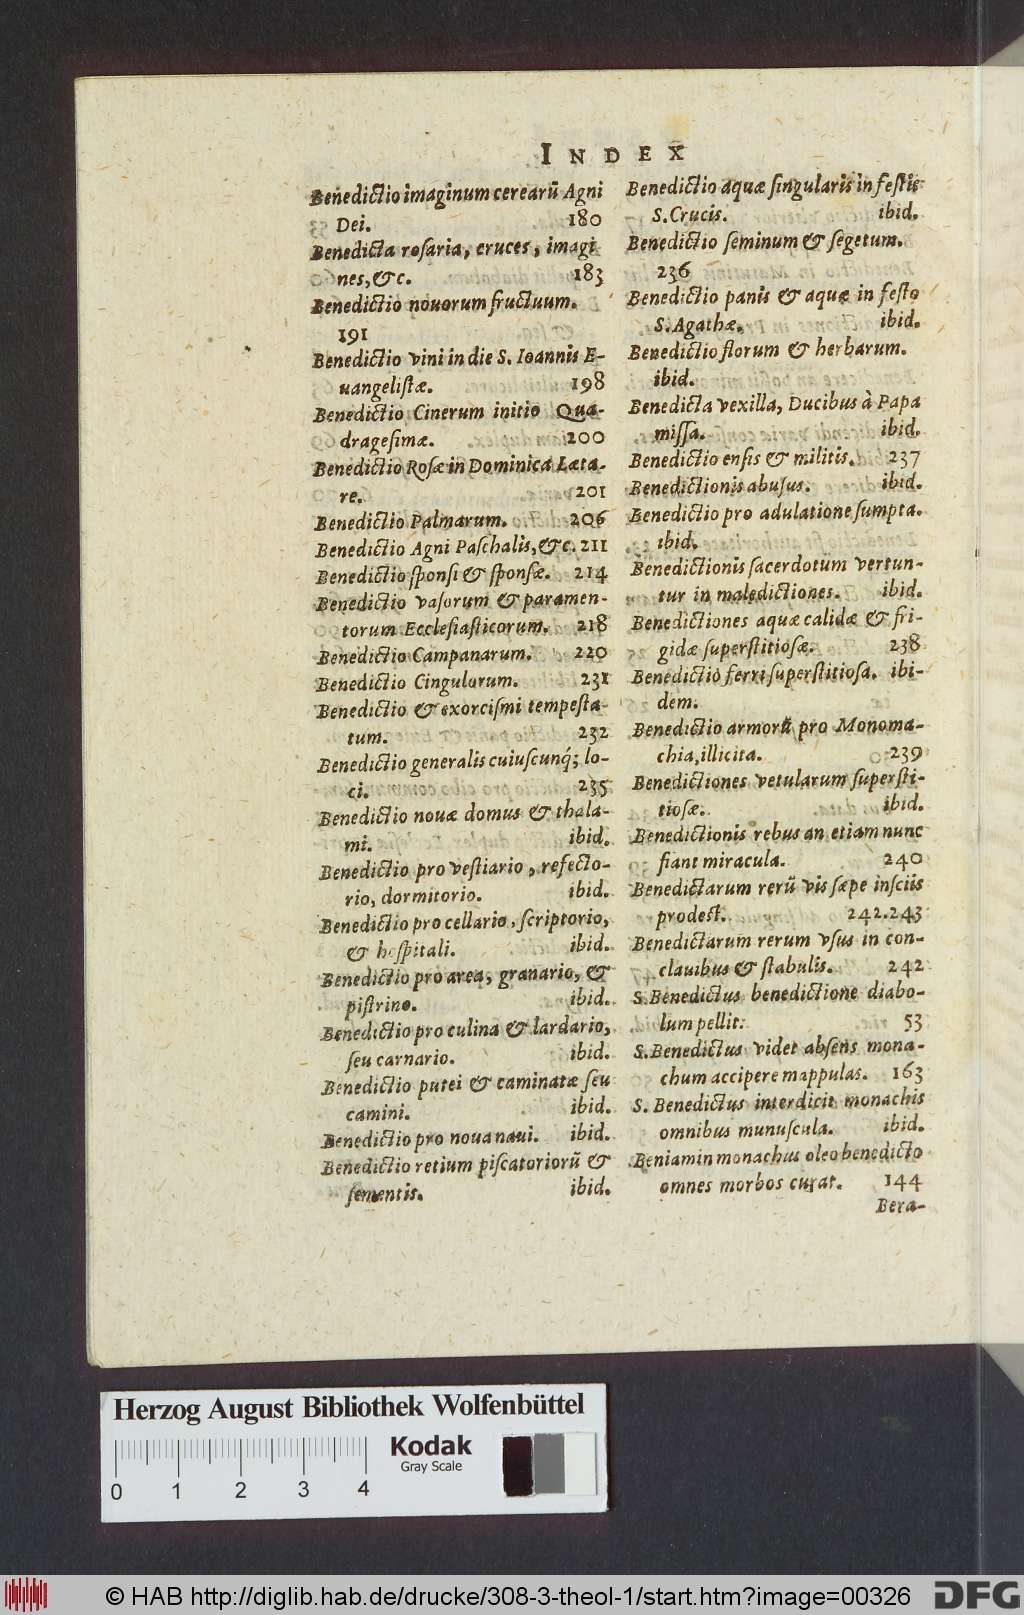 INDEX
Benedictio imaginum cerearū Agni
Dei. 180
Benedicta rosaria, cruces, imagi
nes, &c. 183
Benedictio nouorum fructuum.
191
Benedictio vini in die S. Ioannis E-
uangelistæ. 198
Benedictio Cinerum initio Qua-
dragesimæ. 200
Benedictio Rosæ in Dominica Læta-
re. 201
Benedictio Palmarum. 206
Benedictio Agni Paschalis, &c. 211
Benedictio sponsi & sponsæ. 214
Benedictio vasorum & paramen-
torum Ecclesiasticorum. 218
Benedictio Campanarum. 220
Benedictio Cingulorum. 231
Benedictio & exorcismi tempesta-
tum. 232
Benedictio generalis cuiuscunq́; lo-
ci. 235
Benedictio nouæ domus & thala-
mi. ibid.
Benedictio pro vestiario, refecto-
rio, dormitorio. ibid.
Benedictio pro cellario, scriptorio,
& hospitali. ibid.
Benedictio pro area, granario, &
pistrino. ibid.
Benedictio pro culina & lardario,
seu carnario. ibid.
Benedictio putei & caminatæ seu
camini. ibid.
Benedictio pro noua naui. ibid.
Benedictio retium piscatoriorū &
sementis. ibid.
Benedictio aquæ singularis in festis
S. Crucis. ibid.
Benedictio seminum & segetum.
236
Benedictio panis & aquæ in festo
S. Agathæ. ibid.
Benedictio florum & herbarum.
ibid.
Benedicta vexilla, Ducibus à Papa
missa. ibid.
Benedictio ensis & militis. 237
Benedictionis abusus. ibid.
Benedictio pro adulatione sumpta.
ibid.
Benedictionis sacerdotum vertun-
tur in maledictiones. ibid.
Benedictiones aquæ calidæ & fri-
gidæ superstitiosæ. 238
Benedictio ferri superstitiosa. ibi-
dem.
Benedictio armorū pro Monoma-
chia, illicita. 239
Benedictiones vetularum supersti-
tiosæ. ibid.
Benedictionis rebus an etiam nunc
fiant miracula. 240
Benedictarum rerū vis sæpe insciis
prodest. 242.243
Benedictarum rerum vsus in con-
clauibus & stabulis. 242
S. Benedictus benedictione diabo-
lum pellit: 53
S. Benedictus videt absens mona-
chum accipere mappulas. 163
S. Benedictus interdicit monachis
omnibus munuscula. ibid.
Beniamin monachus oleo benedicto
omnes morbos curat. 144
Bera-
Herzog August Bibliothek Wolfenbüttel
Kodak
Gray Scale
0 1 2 3 4
© HAB http://diglib.hab.de/drucke/308-3-theol-1/start.htm?image=00326
DFG